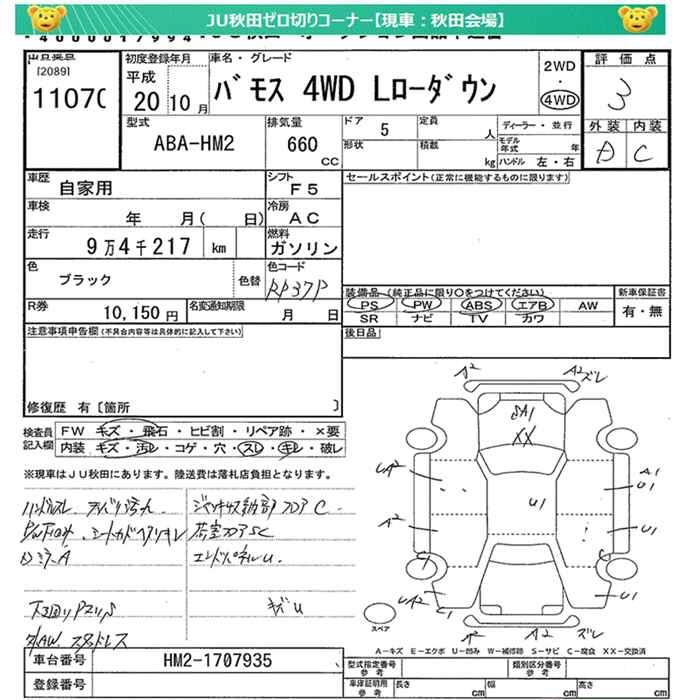 JU秋田ゼロ切りコーナー【現車：秋田会場】
出品票
[2089]
1107
初度登録年月
平成
20年 10月
車名・グレード
バモス 4WD Lローダウン
2WD
・
4WD
評価点
3
外装 内装
D C
型式
ABA-HM2
排気量
660
CC
ドア
5
定員
人
ディーラー・並行
形状
積載
kg
モデル年式
年
ハンドル 左・右
車歴
自家用
シフト
F5
セールスポイント(正常に機能するものに限ります)
車検
年 月( 日)
冷房
AC
走行
9万4千217 km
燃料
ガソリン
色
ブラック
色替
色コード
RP37P
装備品(純正品に限り○をつけてください)
新車保証書
PS PW ABS エアB AW
有・無
SR ナビ TV カワ
R券
10,150円
名変通知期限
月 日
後日品
注意事項申告欄(不具合内容等は具体的に記入して下さい)
修復歴 有〔箇所 〕
検査員
記入欄
FW キズ・飛石・ヒビ割・リペア跡・×要
内装 キズ・汚レ・コゲ・穴・スレ・キレ・破レ
※現車はJU秋田にあります。陸送費は落札店負担となります。
ハンドルスレ
C
エンドパネルU
キズU
下回り
スタッドレス
A2 A2 ズレ
A1
XX
UA2
A2
U1
A1
U1
U1
C1
UA2
C1
U1
A2 A2 ズレ
スペア
A－キズ E－エクボ U－凹み W－補修跡 S－サビ C－腐食 XX－交換済
車台番号
HM2-1707935
登録番号
型式指定番号
参考
類別区分番号
参考
車庫証明用
参考
長さ cm
幅 cm
高さ cm